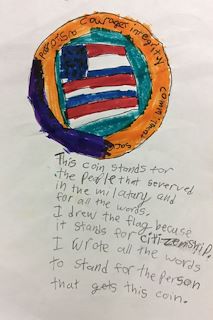 Patriotism Courage integrity
Commitment
This coin stands for
the People that severved
in the military and
for all the words.
I drew the flag becuse
it stands for citizenship.
I wrote all the words
to stand for the person
that gets this coin.